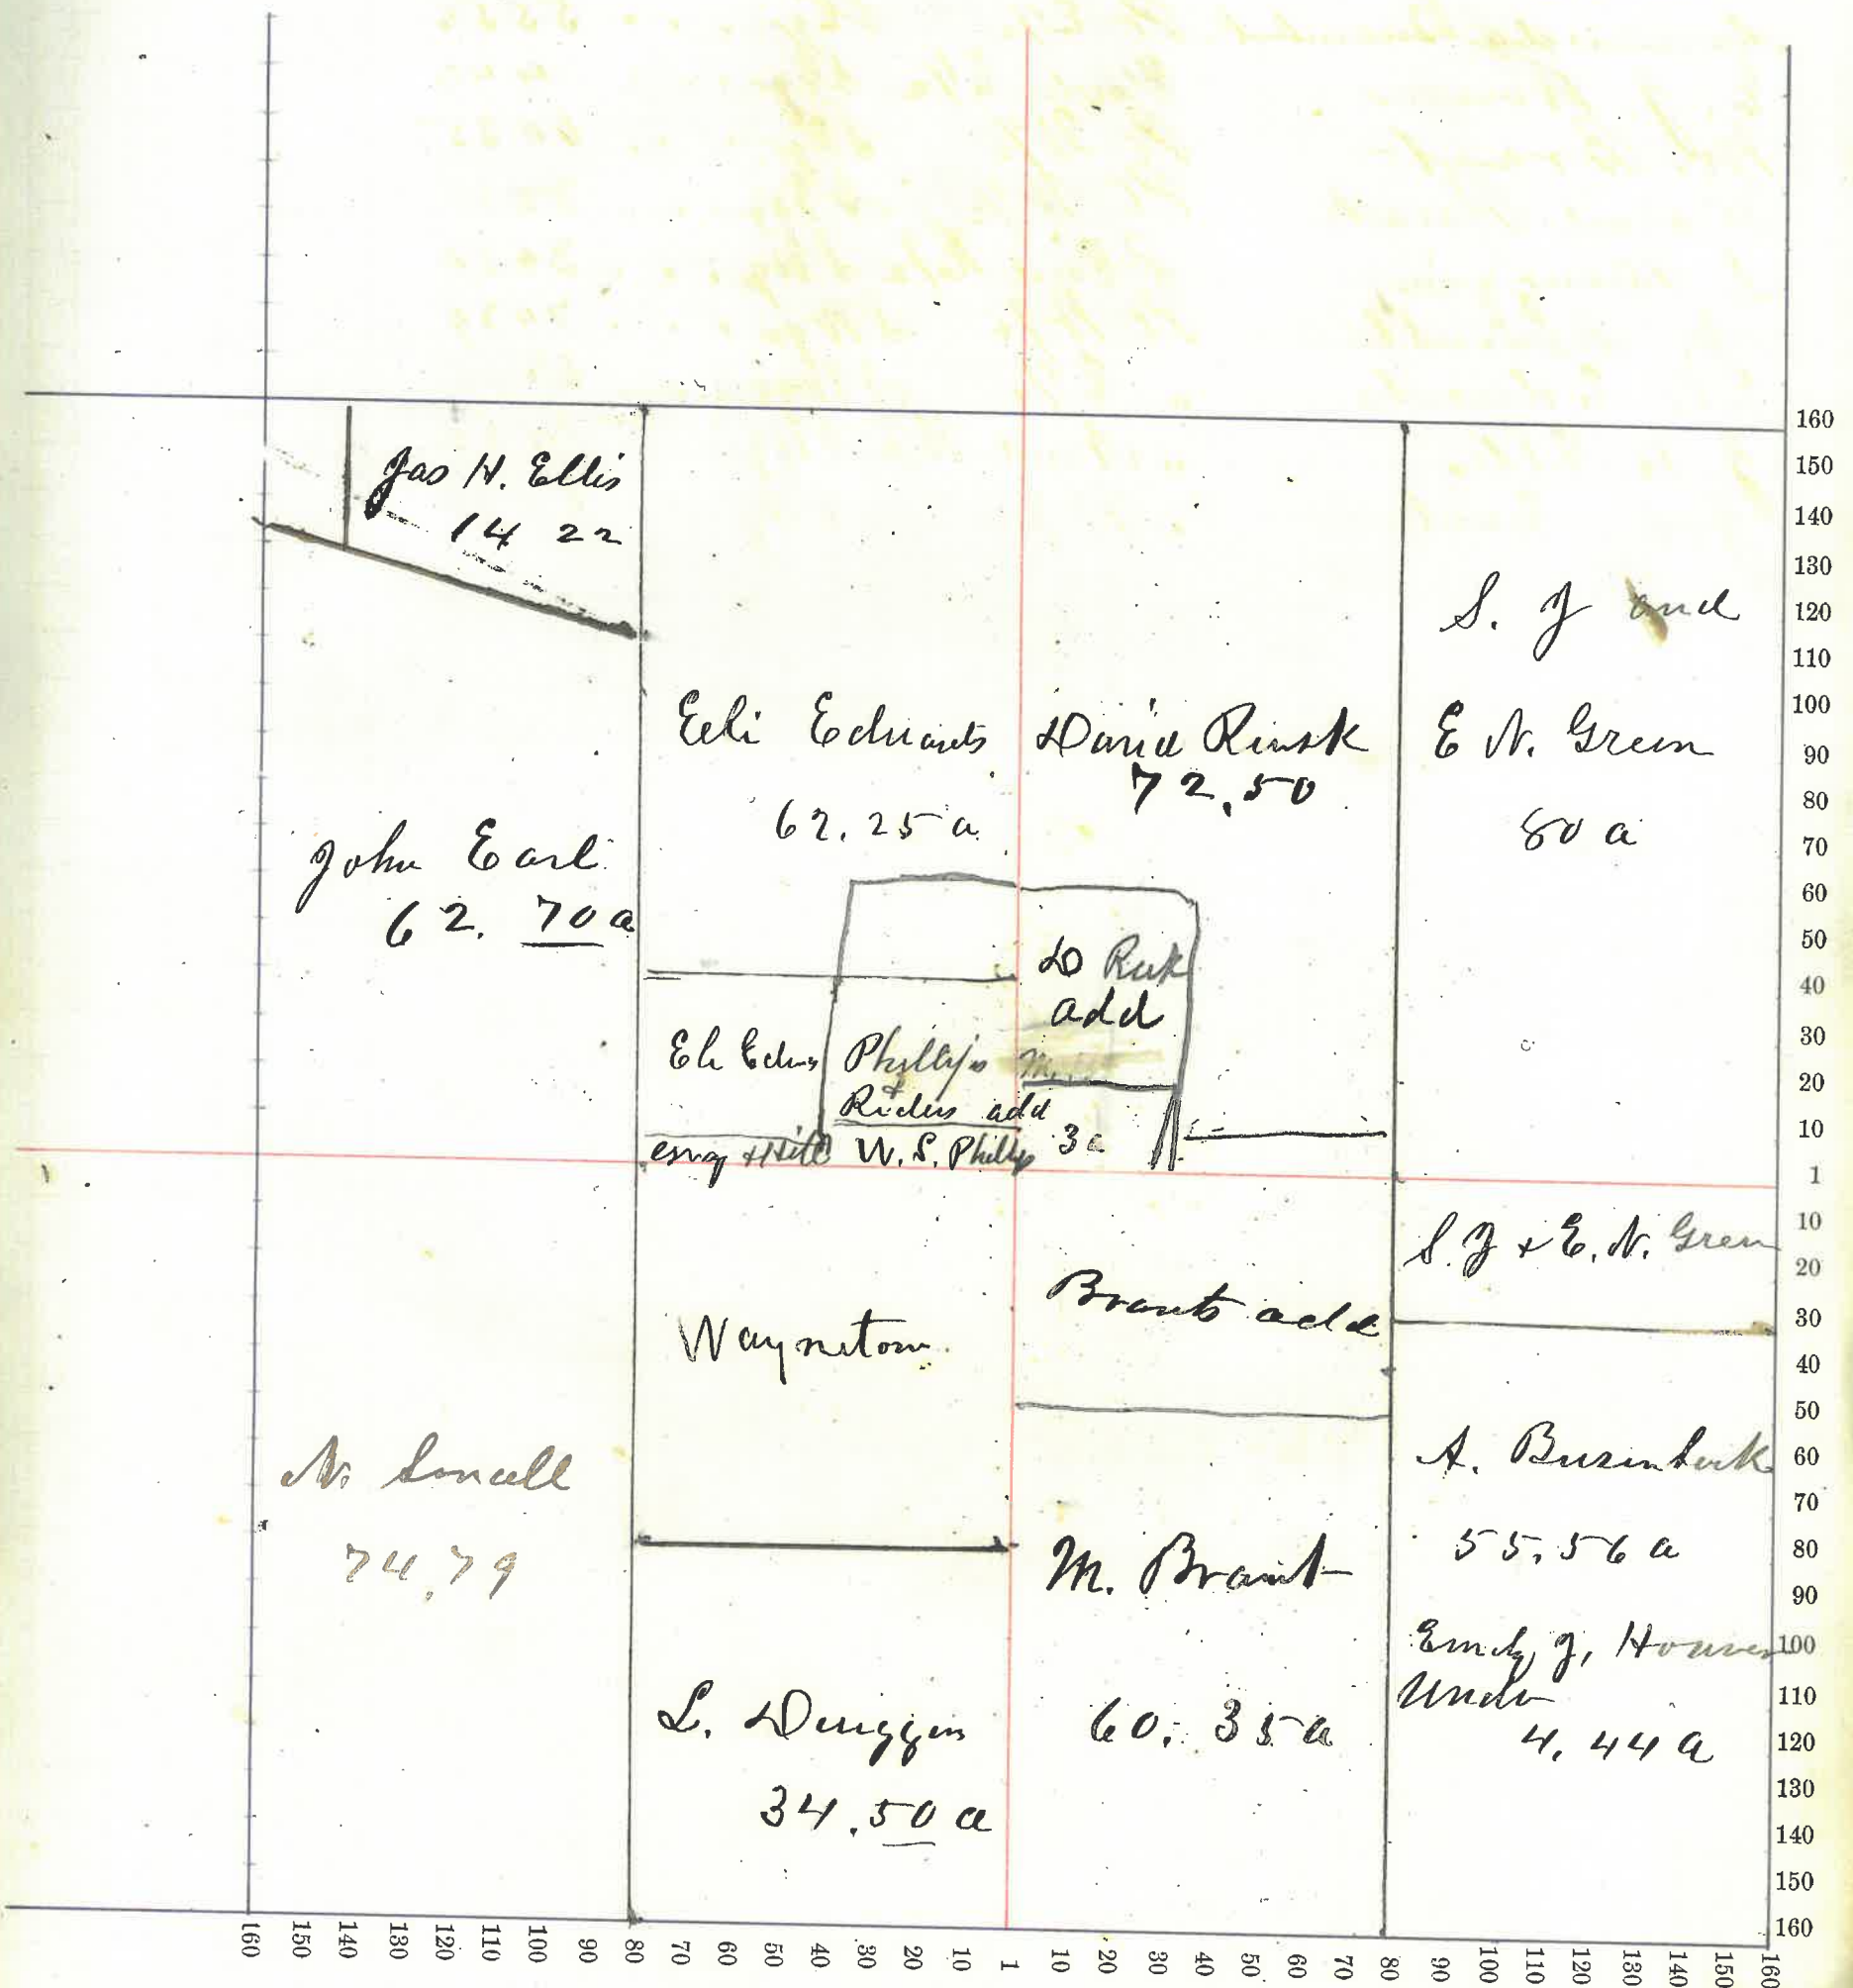 Jas H. Ellis
14 22
S. J and
E N. Green
80 a
Eli Edwards
62.25 a
David Rusk
72.50
John Earl
62. 70 a
D Rusk
add
Eli Edws
Phillips
+
Riders add
& Hill
W. S. Phillips
3a
S. J & E. N. Green
Brants add
Waynetown
N. Small
74.79
A. Busenbark
55.56 a
M. Brant
60. 35 a
Emily J, Hoover
4.44 a
L. Duiggin
34.50 a
160
150
140
130
120
110
100
90
80
70
60
50
40
30
20
10
1
10
20
30
40
50
60
70
80
90
100
110
120
130
140
150
160
160 150 140 130 120 110 100 90 80 70 60 50 40 30 20 10 1 10 20 30 40 50 60 70 80 90 100 110 120 130 140 150 160